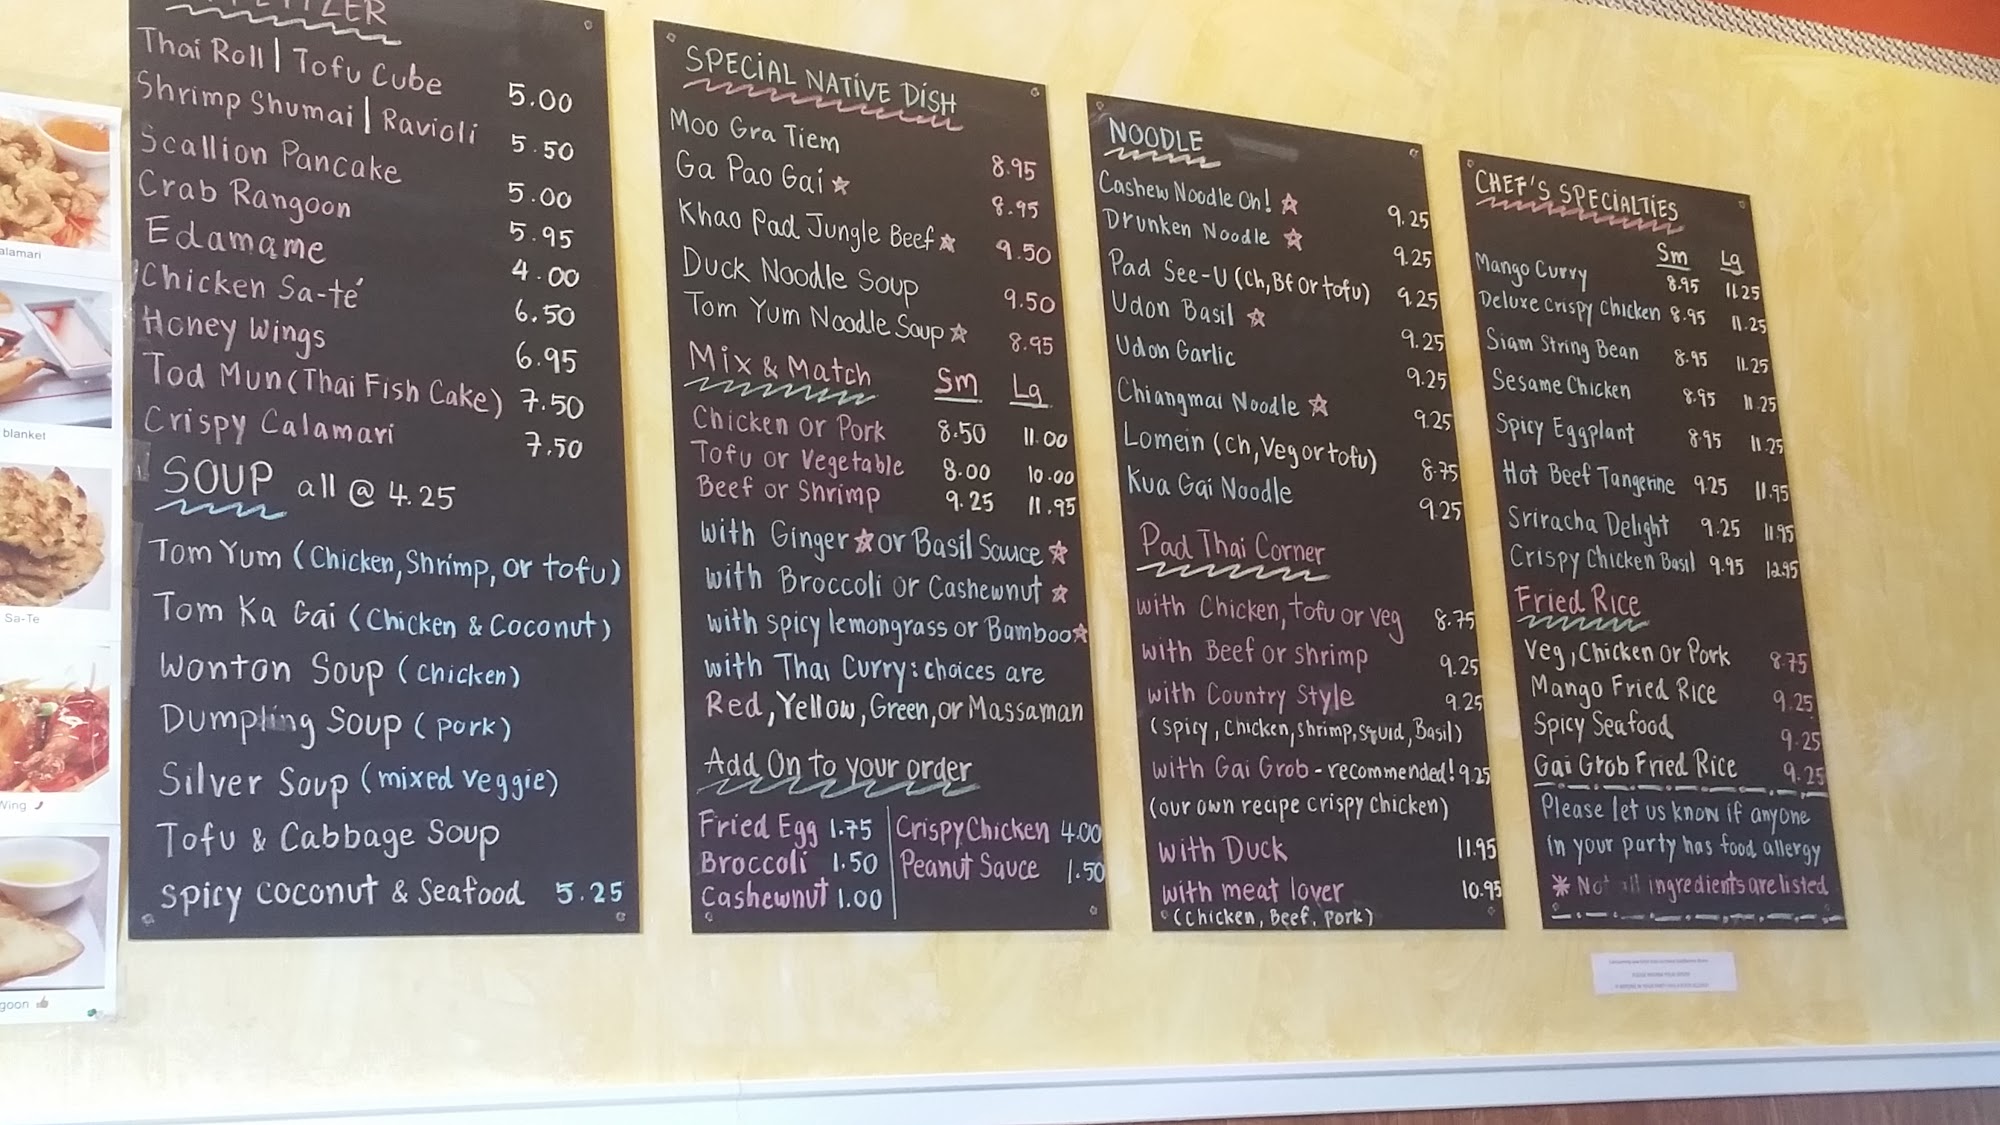 Thai Roll | Tofu Cube 5.00
Shrimp Shumai | Ravioli 5.50
Scallion Pancake 5.00
Crab Rangoon 5.95
Edamame 4.00
Chicken Sa-té 6.50
Honey Wings 6.95
Tod Mun (Thai Fish Cake) 7.50
Crispy Calamari 7.50
SOUP all @ 4.25
Tom Yum (Chicken, Shrimp, or tofu)
Tom Ka Gai (Chicken & Coconut)
Wonton Soup (chicken)
Dumpling Soup (pork)
Silver Soup (mixed veggie)
Tofu & Cabbage Soup
Spicy Coconut & Seafood 5.25
SPECIAL NATIVE DISH
Moo Gra Tiem 8.95
Ga Pao Gai ☆ 8.95
Khao Pad Jungle Beef ☆ 9.50
Duck Noodle Soup 9.50
Tom Yum Noodle Soup ☆ 8.95
Mix & Match Sm Lg
Chicken or Pork 8.50 11.00
Tofu or Vegetable 8.00 10.00
Beef or Shrimp 9.25 11.95
with Ginger ☆ or Basil Sauce ☆
with Broccoli or Cashewnut ☆
with spicy lemongrass or Bamboo ☆
with Thai Curry: choices are
Red, Yellow, Green, or Massaman
Add On to your order
Fried Egg 1.75 | Crispy Chicken 4.00
Broccoli 1.50 | Peanut Sauce 1.50
Cashewnut 1.00
NOODLE
Cashew Noodle Oh! ☆ 9.25
Drunken Noodle ☆ 9.25
Pad See-U (Ch, Bf or tofu) 9.25
Udon Basil ☆ 9.25
Udon Garlic 9.25
Chiangmai Noodle ☆ 9.25
Lomein (Ch, Veg or tofu) 8.75
Kua Gai Noodle 9.25
Pad Thai Corner
with Chicken, tofu or veg 8.75
with Beef or shrimp 9.25
with Country Style 9.25
(spicy, Chicken, shrimp, squid, Basil)
with Gai Grob - recommended! 9.25
(our own recipe crispy chicken)
with Duck 11.95
with meat lover 10.95
(Chicken, Beef, Pork)
CHEF'S SPECIALTIES
Sm Lg
Mango Curry 8.95 11.25
Deluxe Crispy Chicken 8.95 11.25
Siam String Bean 8.95 11.25
Sesame Chicken 8.95 11.25
Spicy Eggplant 8.95 11.25
Hot Beef Tangerine 9.25 11.95
Sriracha Delight 9.25 11.95
Crispy Chicken Basil 9.95 12.95
Fried Rice
Veg, Chicken or Pork 8.75
Mango Fried Rice 9.25
Spicy Seafood 9.25
Gai Grob Fried Rice 9.25
Please let us know if anyone
in your party has food allergy
* Not all ingredients are listed
alamari
blanket
Sa-Te
Wing
goon